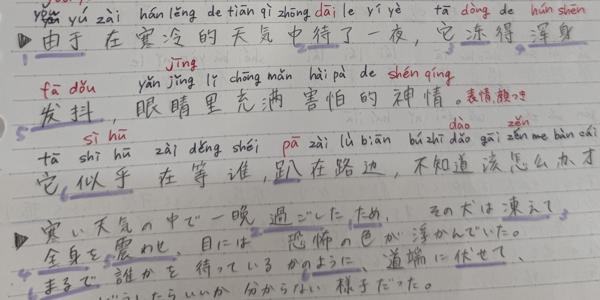 yóu yú zài hán lěng de tiān qì zhōng dāi le yí yè tā dòng de hún shēn
▶由于在寒冷的天気中待了一夜，它冻得浑身
jīng
fā dǒu yǎn jīng lǐ chōng mǎn hài pà de shén qíng
发抖，眼睛里充满害怕的神情。表情,顔つき
sì hū dào zěn
tā shì hū zài děng shéi pā zài lù biān bú zhī dào gāi zěn me bàn cái
它似乎在等谁，趴在路边，不知道该怎么办才
▶寒い天気の中で一晩過ごしたため、その犬は凍えて
全身を震わせ、目には恐怖の色が浮かんでいた。
まるで誰かを待っているかのように、道端に伏せて、
どうしたらいいか分からない様子だった。